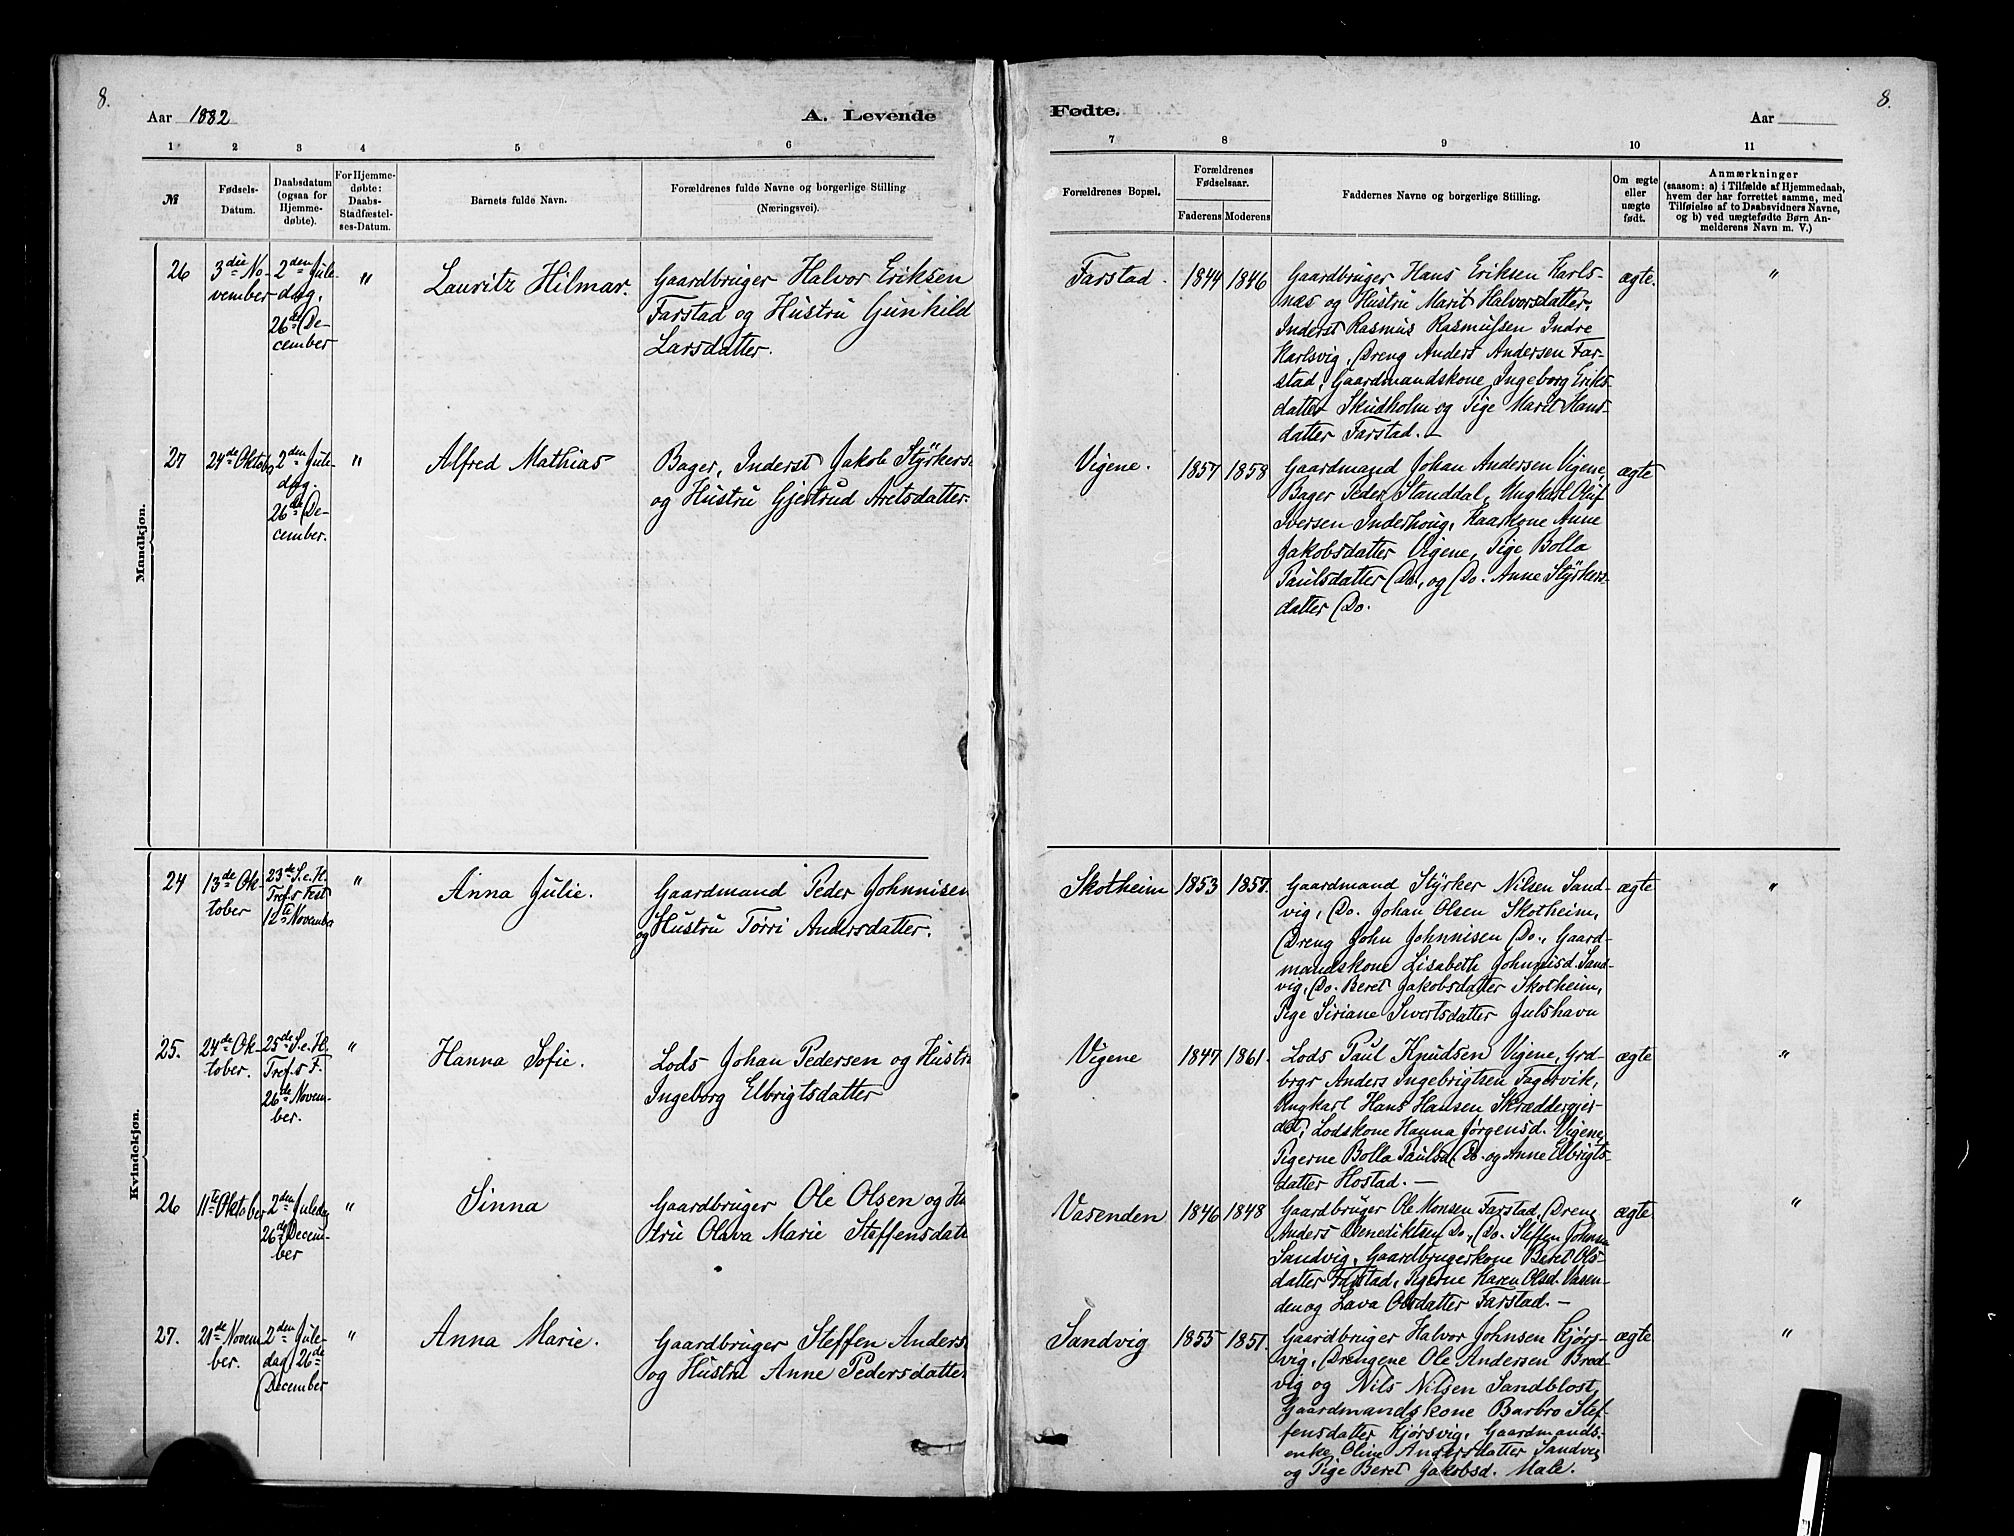 8.
Aar 1882
A. Levende
Fødte.
Aar
8.
1 2 3 4 5 6 7 8 9 10 11
№
Fødsels-
Datum.
Daabsdatum
(ogsaa for
Hjemme-
døbte).
For Hjemme-
døbte:
Daabs-
Stadfæstel-
ses-Datum.
Barnets fulde Navn.
Forældrenes fulde Navne og borgerlige Stilling
(Næringsvei).
Forældrenes Bopæl.
Forældrenes
Fødselsaar.
Faderens Moderens
Faddernes Navne og borgerlige Stilling.
Om ægte
eller
uægte
født.
Anmærkninger
(saasom: a) i Tilfælde af Hjemmedaab,
hvem der har forrettet samme, med
Tilføielse af to Daabsvidners Navne,
og b) ved uægtefødte Børn An-
melderens Navn m. V.)
Mandkjøn.
26
3die No-
vember
2den Jule-
dag.
26de De-
cember
"
Lauritz Hilmar.
Gaardbruger Halvor Eriksen
Farstad og Hustru Gunhild
Larsdatter.
Farstad.
1844
1846
Gaardbruger Hans Eriksen Karls-
næs og Hustru Marit Halvorsdatter,
Inderst Rasmus Rasmussen Indre
Karlsvig, Dreng Anders Andersen Far-
stad, Gaardmandskone Ingeborg Eriks-
datter Skudholm og Pige Marit Hans-
datter Farstad. —
ægte.
"
27
24de Oktob
2den Jule-
dag.
26de De-
cember.
"
Alfred Mathias
Bager, Inderst Jakob Styrkers.
og Hustru Gjertrud Aretsdatter.
Vigene.
1857
1858
Gaardmand Johan Andersen Vigene,
Bager Peder Standdal, Ungkarl Oluf
Iversen Inderhoug, Kaarkone Anne
Jakobsdatter Vigene, Pige Bolla
Paulsdatter Do, og Do. Anne Styrkers-
datter Do.
ægte
Kvindekjøn.
24
13de Ok-
tober
23de S.e.H.
Tref.s Fest
12te Novembe
"
Anna Julie.
Gaardmand Peder Johnnisen
og Hustru Torri Andersdatter.
Skotheim
1853
1857.
Gaardmand Styrker Nilsen Sand-
vig, Do. Johan Olsen Skotheim,
Dreng John Johnnisen Do., Gaard-
mandskone Lisabeth Johnnisd. Sand-
vig, Do. Beret Jakobsdatter Skotheim,
Pige Siriane Sivertsdatter Julshavn
ægte
"
25.
24de Ok-
tober.
25de S.e.H.
Tref.s F.
26de Novem-
ber.
"
Hanna Sofie.
Lods Johan Pedersen og Hustr
Ingeborg Elbrigtsdatter
Vigene
1847
1861.
Lods Paul Knudsen Vigene, Grd-
brgr Anders Ingebrigtsen Fagervik,
Ungkarl Hans Hansen Skræddergjer-
det, Lodskone Hanna Jørgensd. Vigene,
Pigerne Bolla Paulsd. Do. og Anne Elbrigts-
datter Hostad. —
ægte
"
26
11te Oktober
2den Juledag
26de Decem-
ber
"
Sinna
Gaardbruger Ole Olsen og Hu
tru Olava Marie Steffensdatt
Vasenden
1846
1848
Gaardbruger Ole Monsen Farstad, Dreng
Anders Benediktsen Do., Do. Steffen Johnsen
Sandvig, Gaardbrugerkone Beret Ols-
datter Farstad, Pigerne Karen Olsd. Vasen-
den og Lava Olsdatter Farstad. —
ægte
"
27.
21de Novem
ber.
2den Jule-
dag, 26de
December
"
Anna Marie.
Gaardbruger Steffen Anders.
og Hustru Anne Pedersdatter
Sandvig
1855
1851.
Gaardbruger Halvor Johnsen Kjørs-
vig, Drengene Ole Andersen Bred-
vig og Nils Nilsen Sandblost,
Gaardmandskone Barbro Stef-
fensdatter Kjørsvig, Gaardmands-
enke Oline Andersdatter Sandvig
og Pige Beret Jakobsd. Male.
ægte
"